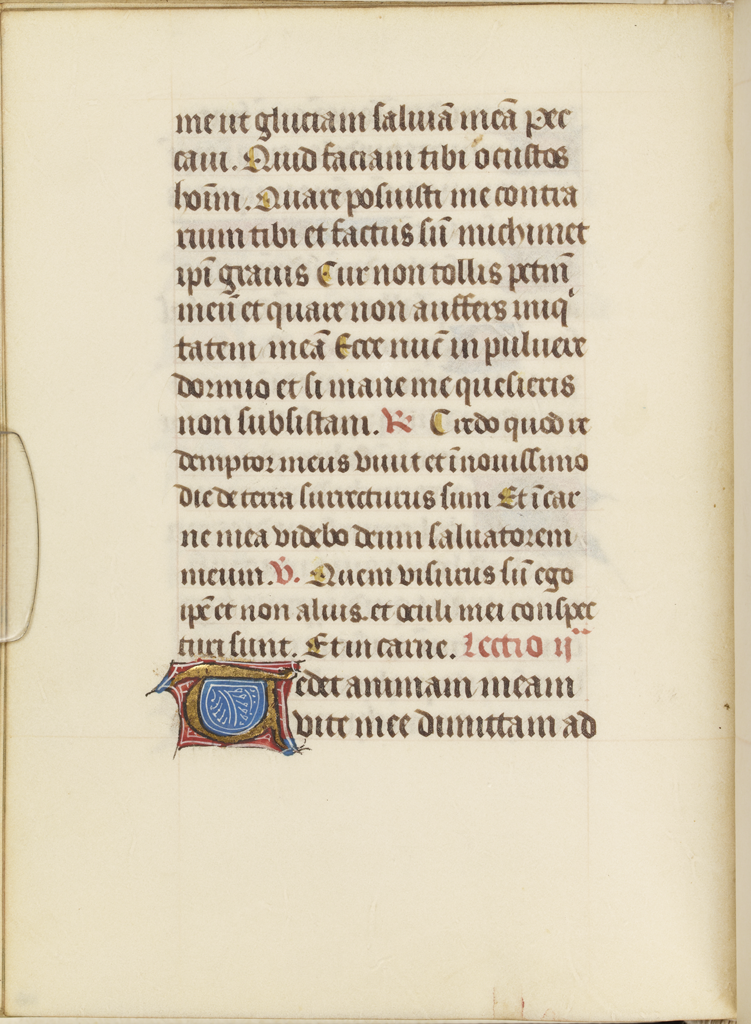 me ut gluciam saliuā meā Pec
caui. Quid faciam tibi o custos
hoīm. Quare posuisti me contra
rium tibi et factus sū michimet
ipī grauis Cur non tollis pctm̄
meū et quare non auffers iniqͥ
tatem meā Ecce nūc in puluere
dormio et si mane me quesieris
non subsistam. R Credo quod re
demptor meus viuit et ī nouissimo
die de terra surrecturus sum Et ī car
ne mea videbo deum saluatorem
meum. V. Quem visurus sū ego
ipē et non alius. et oculi mei conspec
turi sunt. Et in carne. Lectio ijᵃ
Tedet animam meam
vite mee dimittam ad